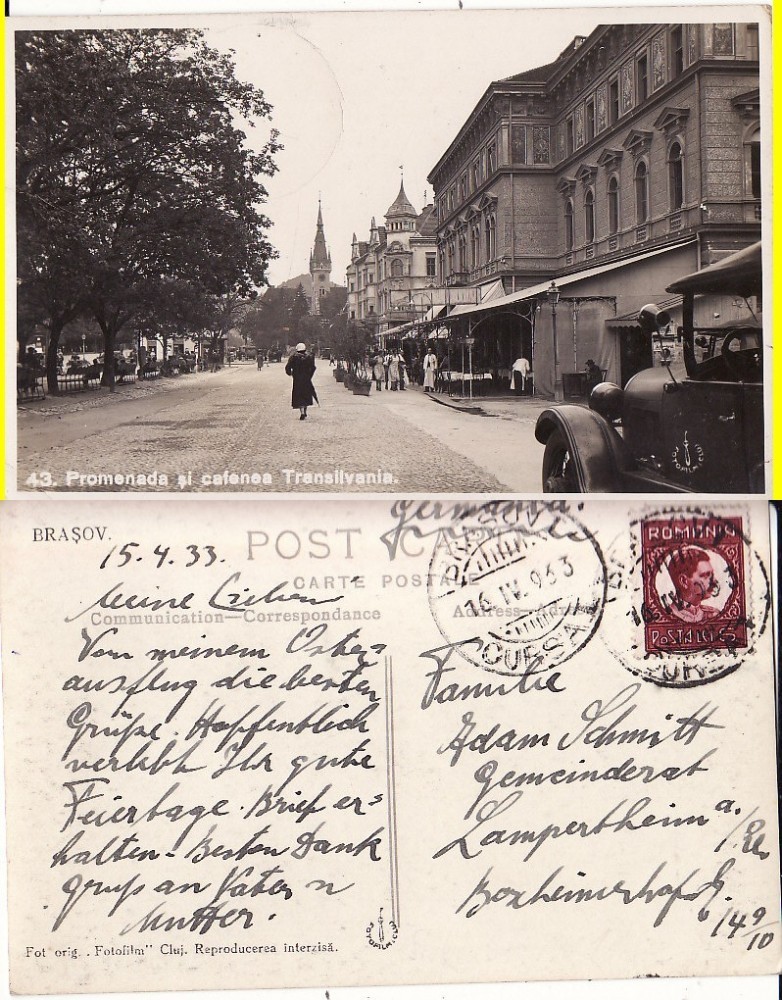 43. Promenada și cafenea Transilvania.
FOTOFILM CLUJ
Germania.
BRAȘOV.
15.4.33.
POST CARD
CARTE POSTALE
Communication—Correspondance
Address—Adresse
Meine Lieben
Von meinem Oster=
ausflug die besten
Grüße. Hoffentlich
verlebt Ihr gute
Feiertage. Brief er=
halten. Besten Dank
Gruß an Vater u
Mutter.
Familie
Adam Schmitt
Gemeinderat
Lampertheim a.
/Rh
Boxheimerhofstr.
149/10
BRAȘOV
16 IV. 933
CURSA
ROMANIA
POSTA LEI 6
16 IV. 933
CURSA
FOTOFILM CLUJ
Fot orig. „Fotofilm" Cluj. Reproducerea interzisă.